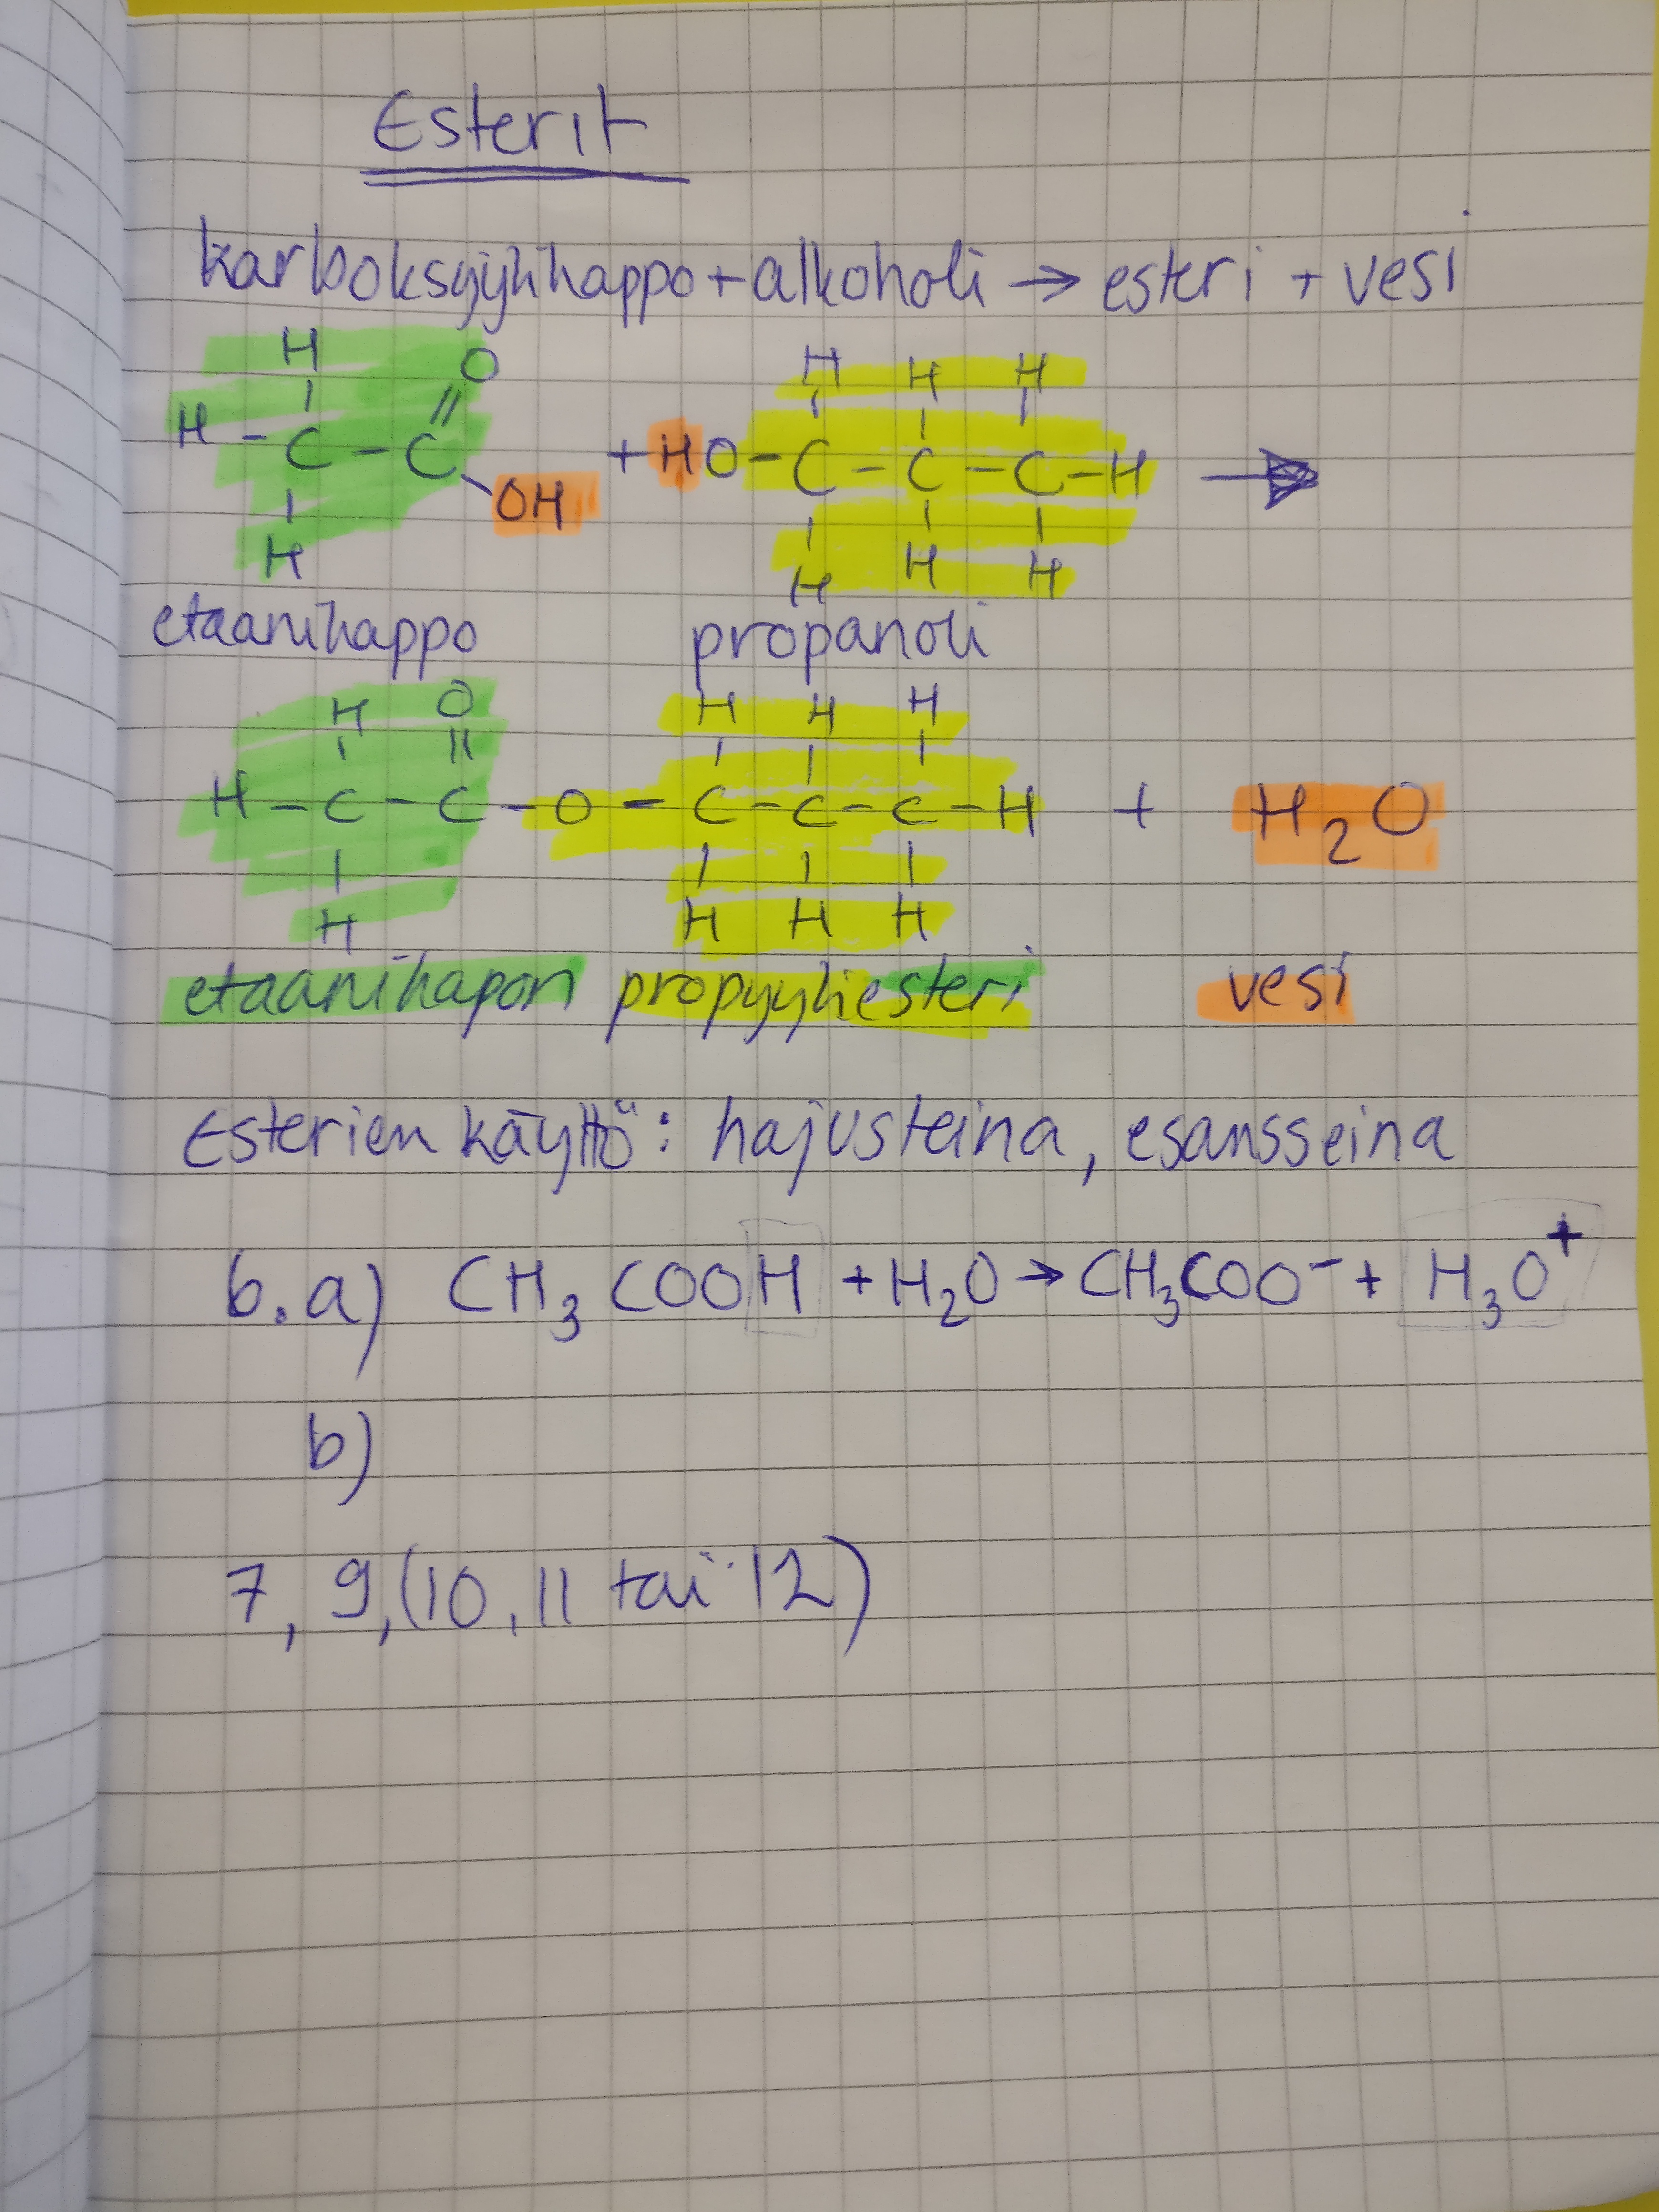 Esterit
karboksyylihappo + alkoholi → esteri + vesi
H O H H H
H - C - C + HO - C - C - C - H →
OH
H H H H
etaanihappo propanoli
H O H H H
H - C - C - O - C - C - C - H + H₂O
H H H H
etaanihapon propyyliesteri vesi
Esterien käyttö: hajusteina, esansseina
6. a) CH₃COOH + H₂O → CH₃COO⁻ + H₃O⁺
b)
7, 9, (10, 11 tai 12)